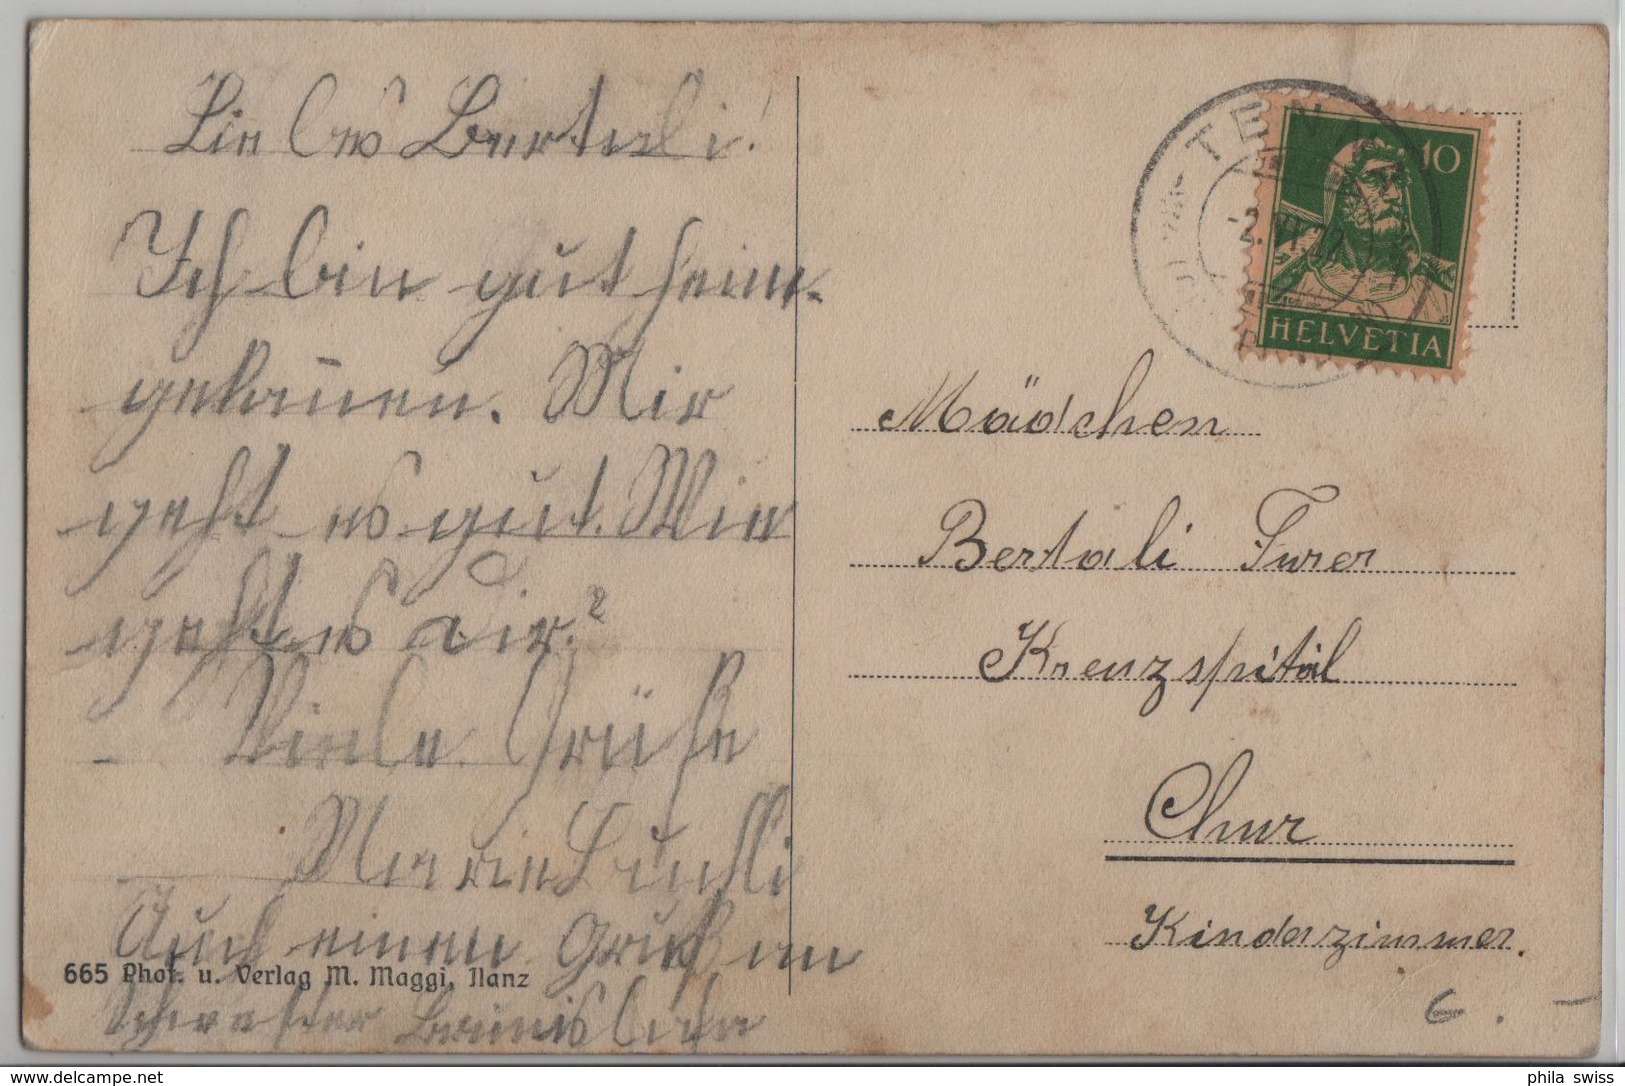 Liebes Bertali!
Ich bin gut heim-
gekom̅en. Mir
geht es gut. Wie
geht es dir?
Viele Grüße
Marie
Auch einen Gruß an
Schwester
665 Phot. u. Verlag M. Maggi, Ilanz
TEN
10
HELVETIA
Mädchen
Bertali Furer
Kreuzspital
Chur
Kinderzimmer.
6. –
phila_swiss